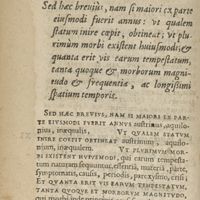 Sed hæc breuius, nam si maiori ex parte
eiusmodi fuerit annus: vt qualem
statum inire cœpit, obtineat; vt plu-
rimùm morbi existent huiusmodi; &
quanta erit vis earum tempestatum,
tanta quoque & morborum magni-
tudo & frequentia, ac longissimi
spatium temporis.
SED HÆC BREVIVS, NAM SI MAIORI EX PAR-
TE EIVSMODI FVERIT ANNVS austrinus, aquilo-
nius, inæqualis, VT QVALEM STATVM
INIRE COEPIT OBTINEAT austrinum, aquilo-
nium, inæqualem. VT PLVRIMVM MOR-
BI EXISTENT HVIVSMODI, qui earum tempesta-
tum naturam sequantur,
symptomata, causas, periodos,
ET QVANTA ERIT VIS EARVM TEMPESTATVM,
TANTA QVOQVE ET MORBORVM MAGNITVDO,